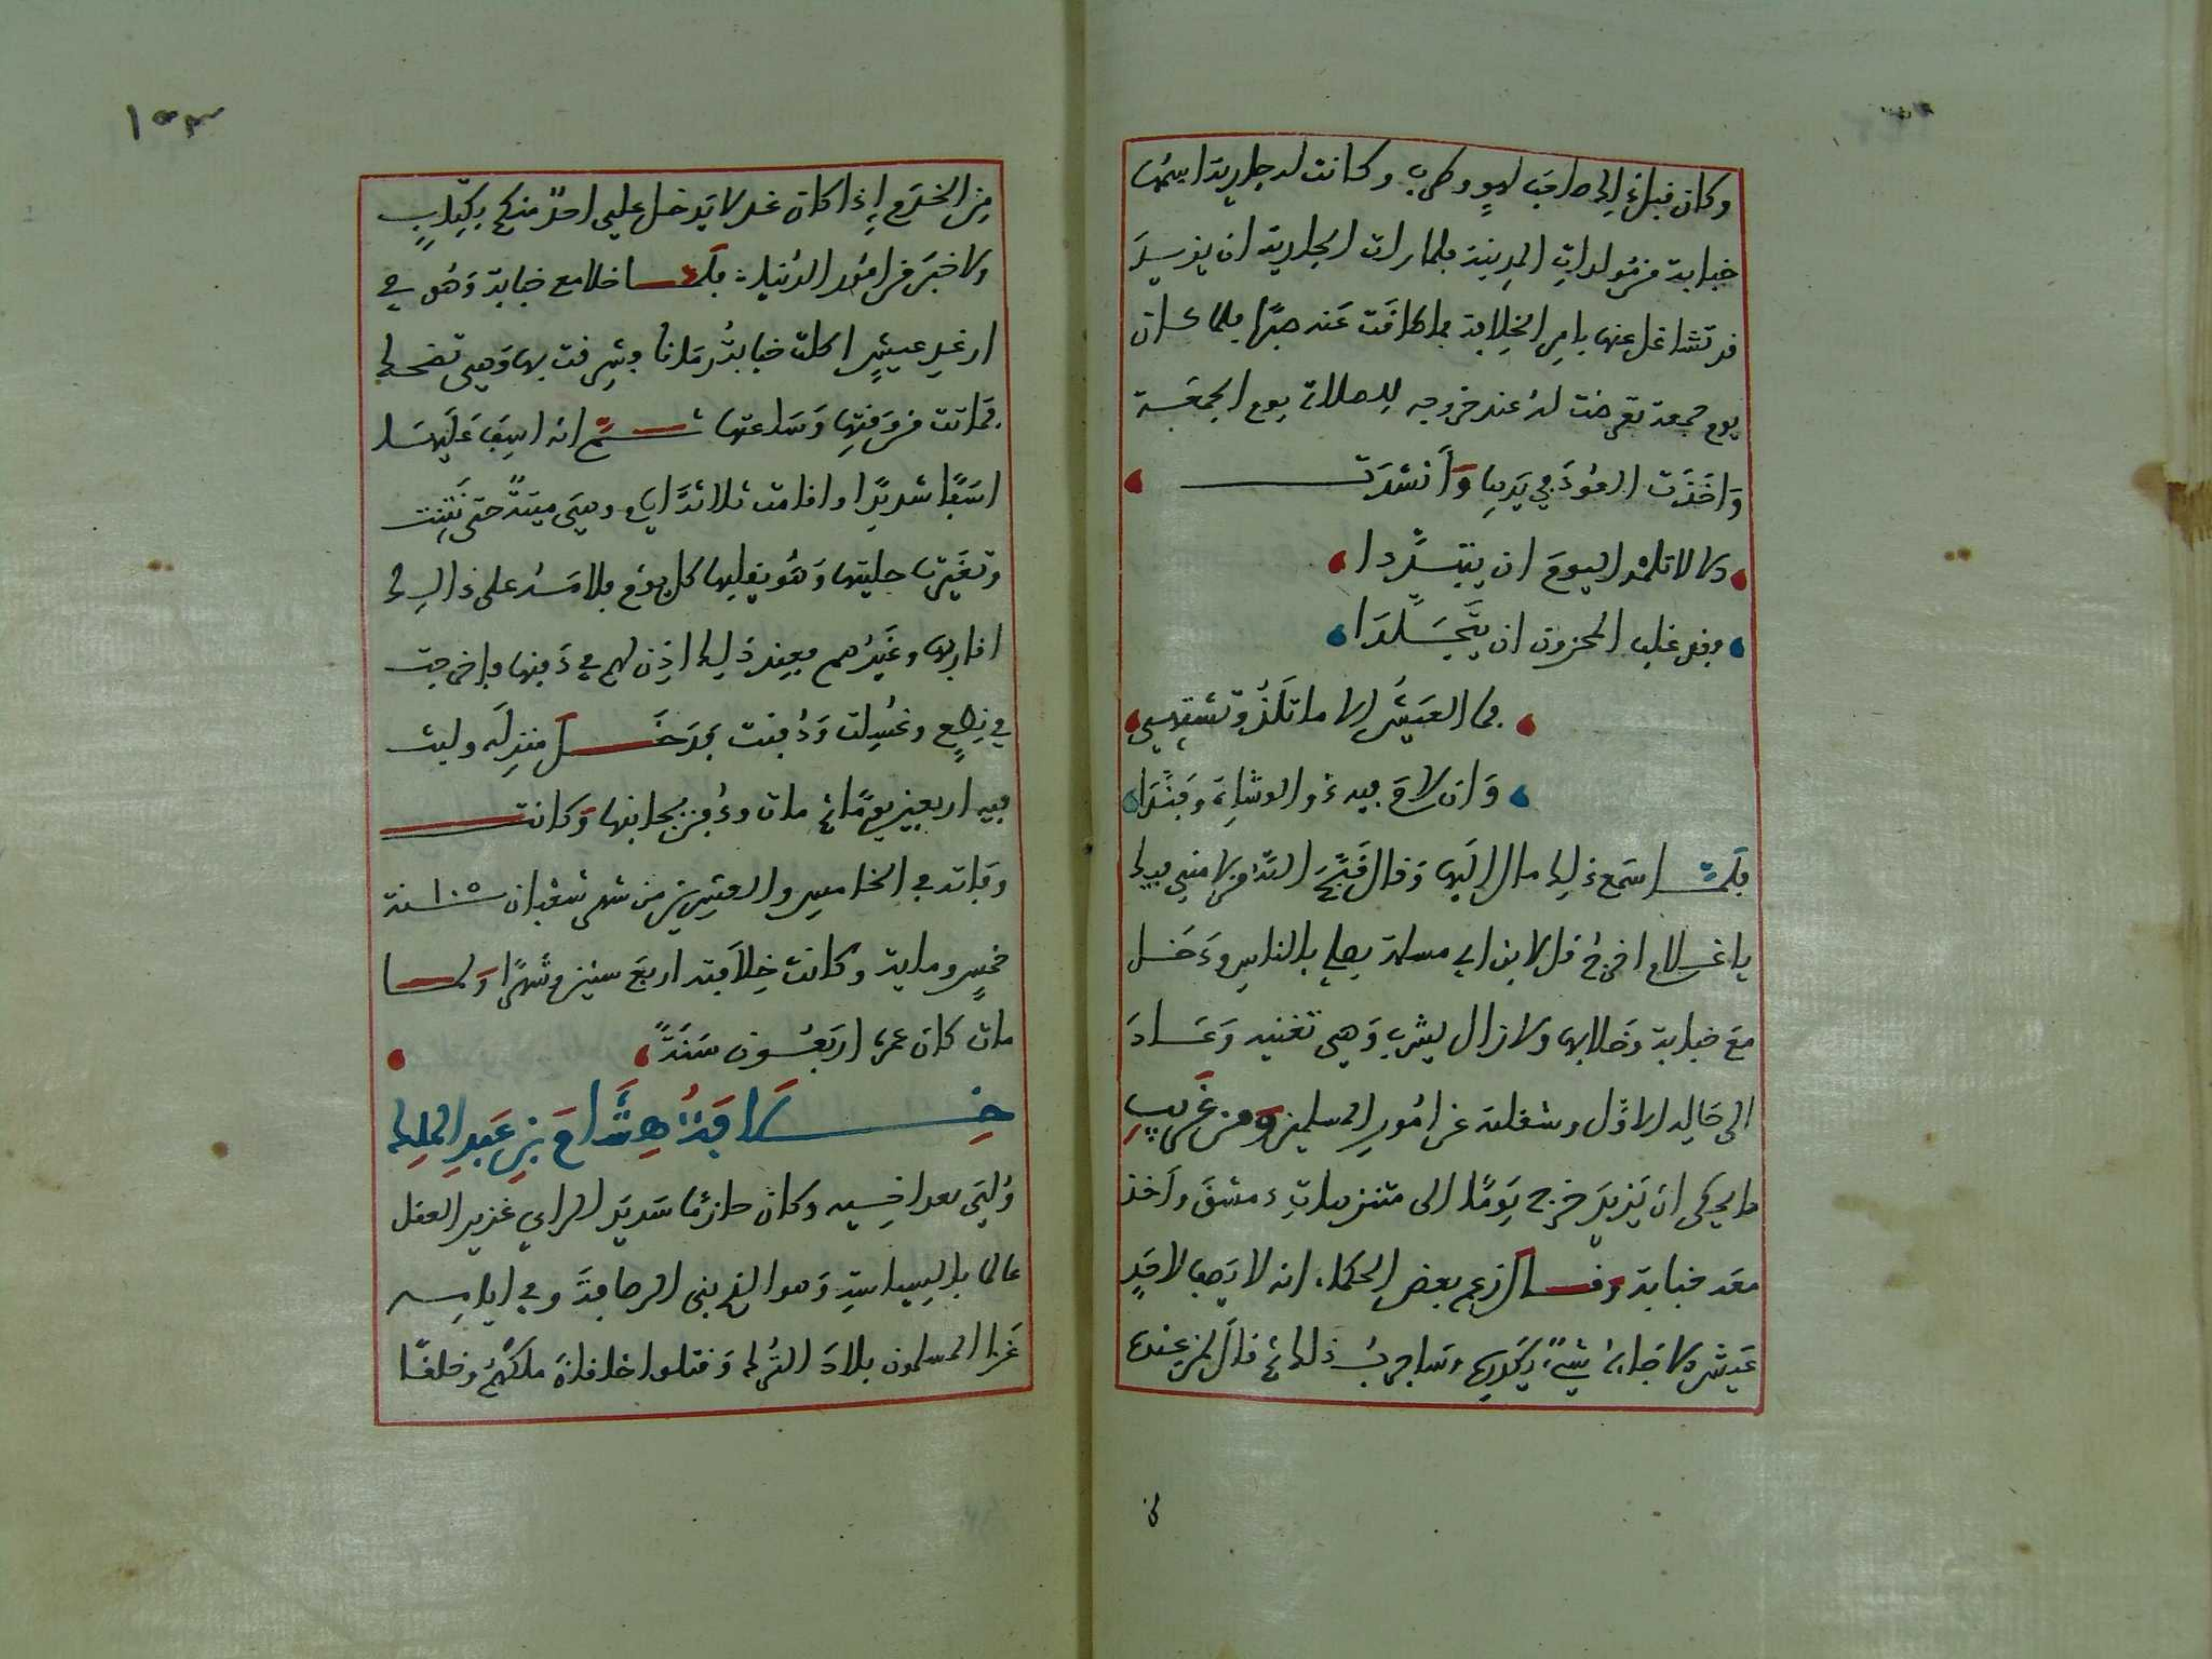 وكان قبل ذلك صاحب لهوٍ وطرب وكانت له جارية اسمها
حبابة من مولدات المدينة فلما رات الجارية ان يزيدَ
قد تشاغل عنها بامر الخلافة بما طاقت عنه صبرًا فلما كان
يوم جمعة تعرضت له عند خروجه للصلاة يوم الجمعة
وَاخَذَت العُودَ في يَدِها وَأنشَدَت
الا لا تلمْه اليومَ ان يتبلَّدا
فقد غلب المحزون ان يتَجَلَّدَا
فما العَيشُ الا ما تَلَذُ وتشتهِي
وَان لامَ فيه ذو الوشاةِ وَفنَّدَا
فلمّا سَمع ذلك مال اليها وَقال قبَّحَ الله من لامني فيك
يا غلام اخرج قل لابن ابي مسلمة يصلي بالناسِ ودَخل
مَعَ حبابة وَخلا بها ولا زال يشرب وَهي تغنيه وَعَادَ
الى حَالِه الاوَّل وشغلته عن امُورِ المسلمين وَمن غَريبِ
ما يحكى انَ يَزيدَ خرج يَومًا الى متنزهاتِ دمشقَ واَخذ
معَه حبابة وقال زعم بعض الحكماء انه لا يَصفا لاحَدٍ
عَيش الا جَاءَهُ شيءٌ يُكدرها وسَاجرب ذلك ثم قالَ لمن عنده
من
١٥٣
مِن الخدَمِ إِذا كان غد لا يَدخل علي احدٌ منكم بكِتابٍ
ولا خبَر من امُور الدُنيا فلمّا خلا مع حبابة وَهُو في
ارغدِ عيشٍ اكلت حبابةُ رمّانًا وشرِقت بها وَهي تضحك
فماتت من وَقتِها وَسَاعتها ثمَّ انه اسِفَ عَلَيها
اسَفًا شديدًا واقامت ثلاثة ايام وهيَ ميتةً حتى نَتِنَت
وتغيّرت حليتها وَهُو يقلبها كل يوم فلامَهُ على ذالك
اقاربها وغَيرُهم فعِند ذلِك اذِن لهم في دَفنِها فاخرجت
في نِطعٍ وغُسِلت وَدُفِنت ودَخَل منزِلَه ولبث
فيه اربعين يومًا ثم مات ودُفِن بجانبها وَكانت
وفاته في الخامسِ والعشرين من شهر شعبان ١٠٥ سنة
خمسٍ وماية وكانت خِلافته اربعَ سنين وشهرًا وَلما
مات كان عمره اربَعُون سَنَةً
خِلَافَةُ هِشَامَ بنِ عَبدِ الملِكِ
وُلِيَ بعد اخيه وكان حازمًا سَديدَ الراي غزير العقل
عالما بالسياسَةِ وَهو الذي بنى الرصافةَ وفي ايامه
غَزا المسلمون بلادَ التُرك وَقتلوا خاقانَ ملكَهُم وخلقًا